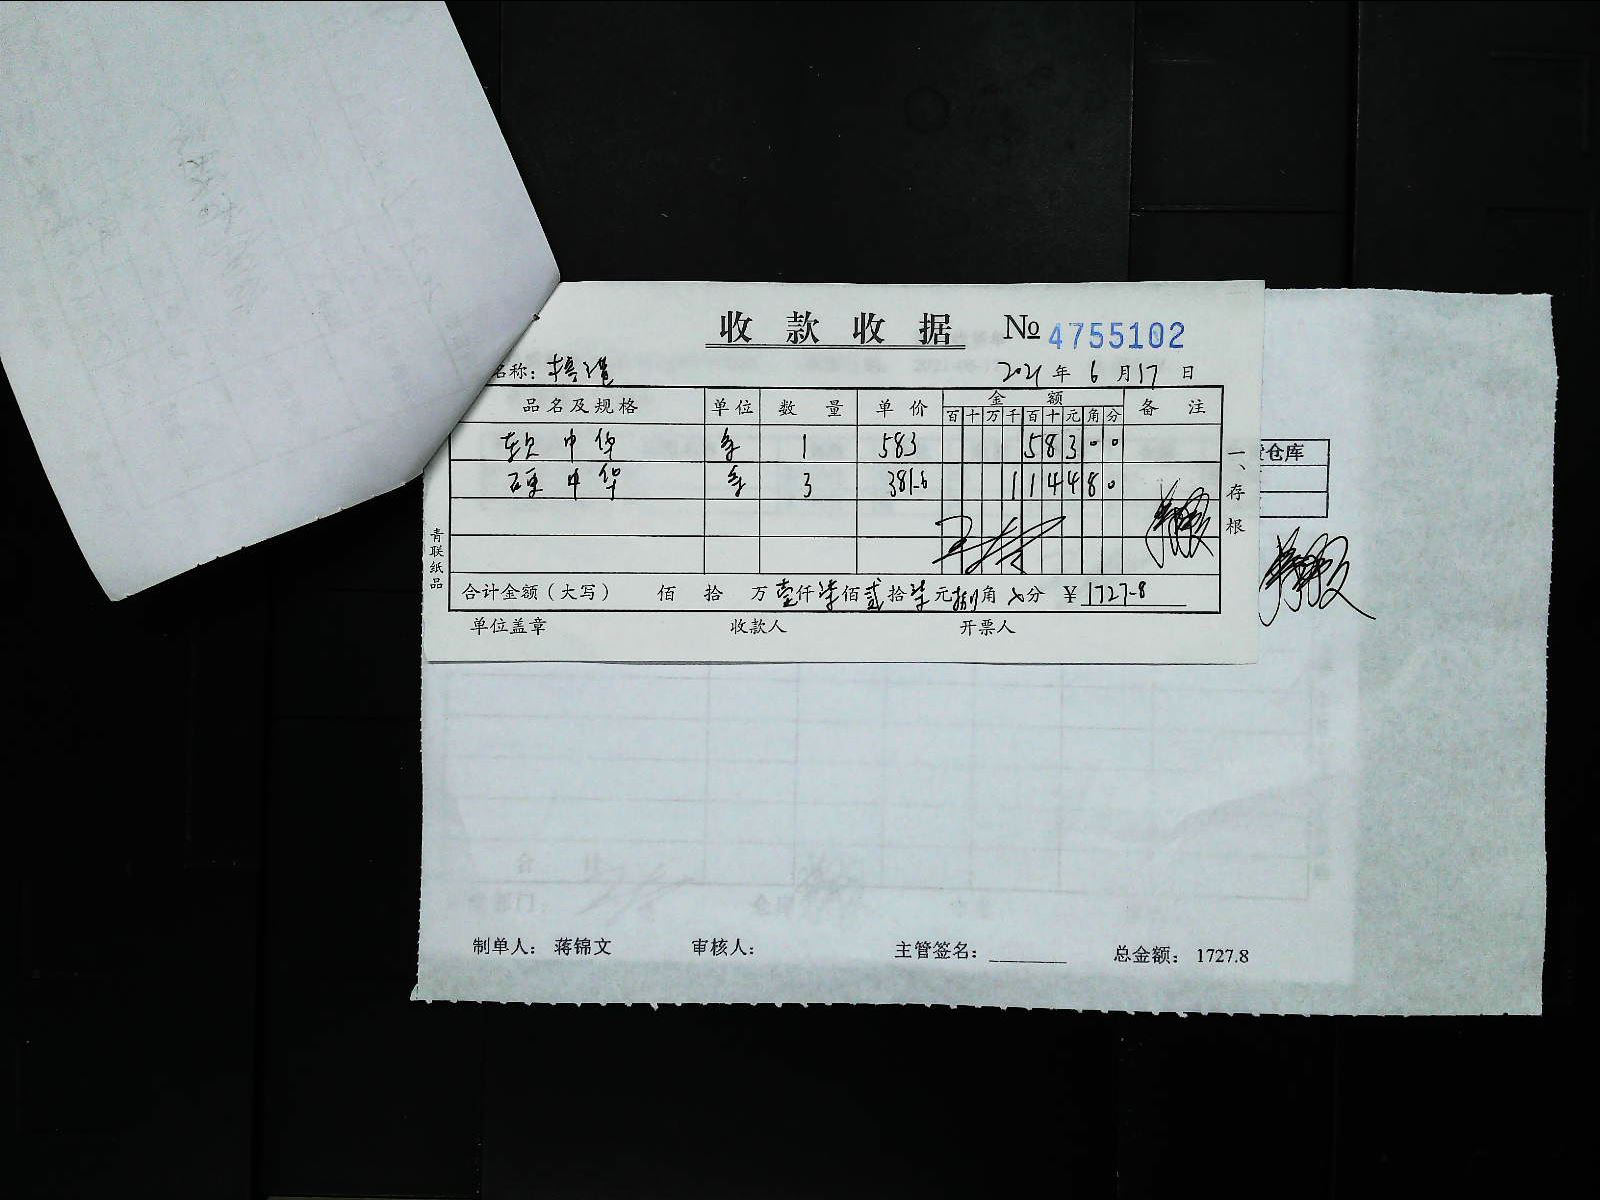 收款收据 № 4755102
名称： 2021年6月17日
品名及规格 单位 数量 单价 金额 备注
百十万千百十元角分
软中华 条 1 583 58300
硬中华 条 3 381.6 114480
合计金额（大写） 佰 拾 万壹仟柒佰贰拾柒元捌角 分 ¥1727.8
单位盖章 收款人 开票人
青联纸品
一、存根
仓库
制单人： 蒋锦文 审核人： 主管签名：_______ 总金额： 1727.8